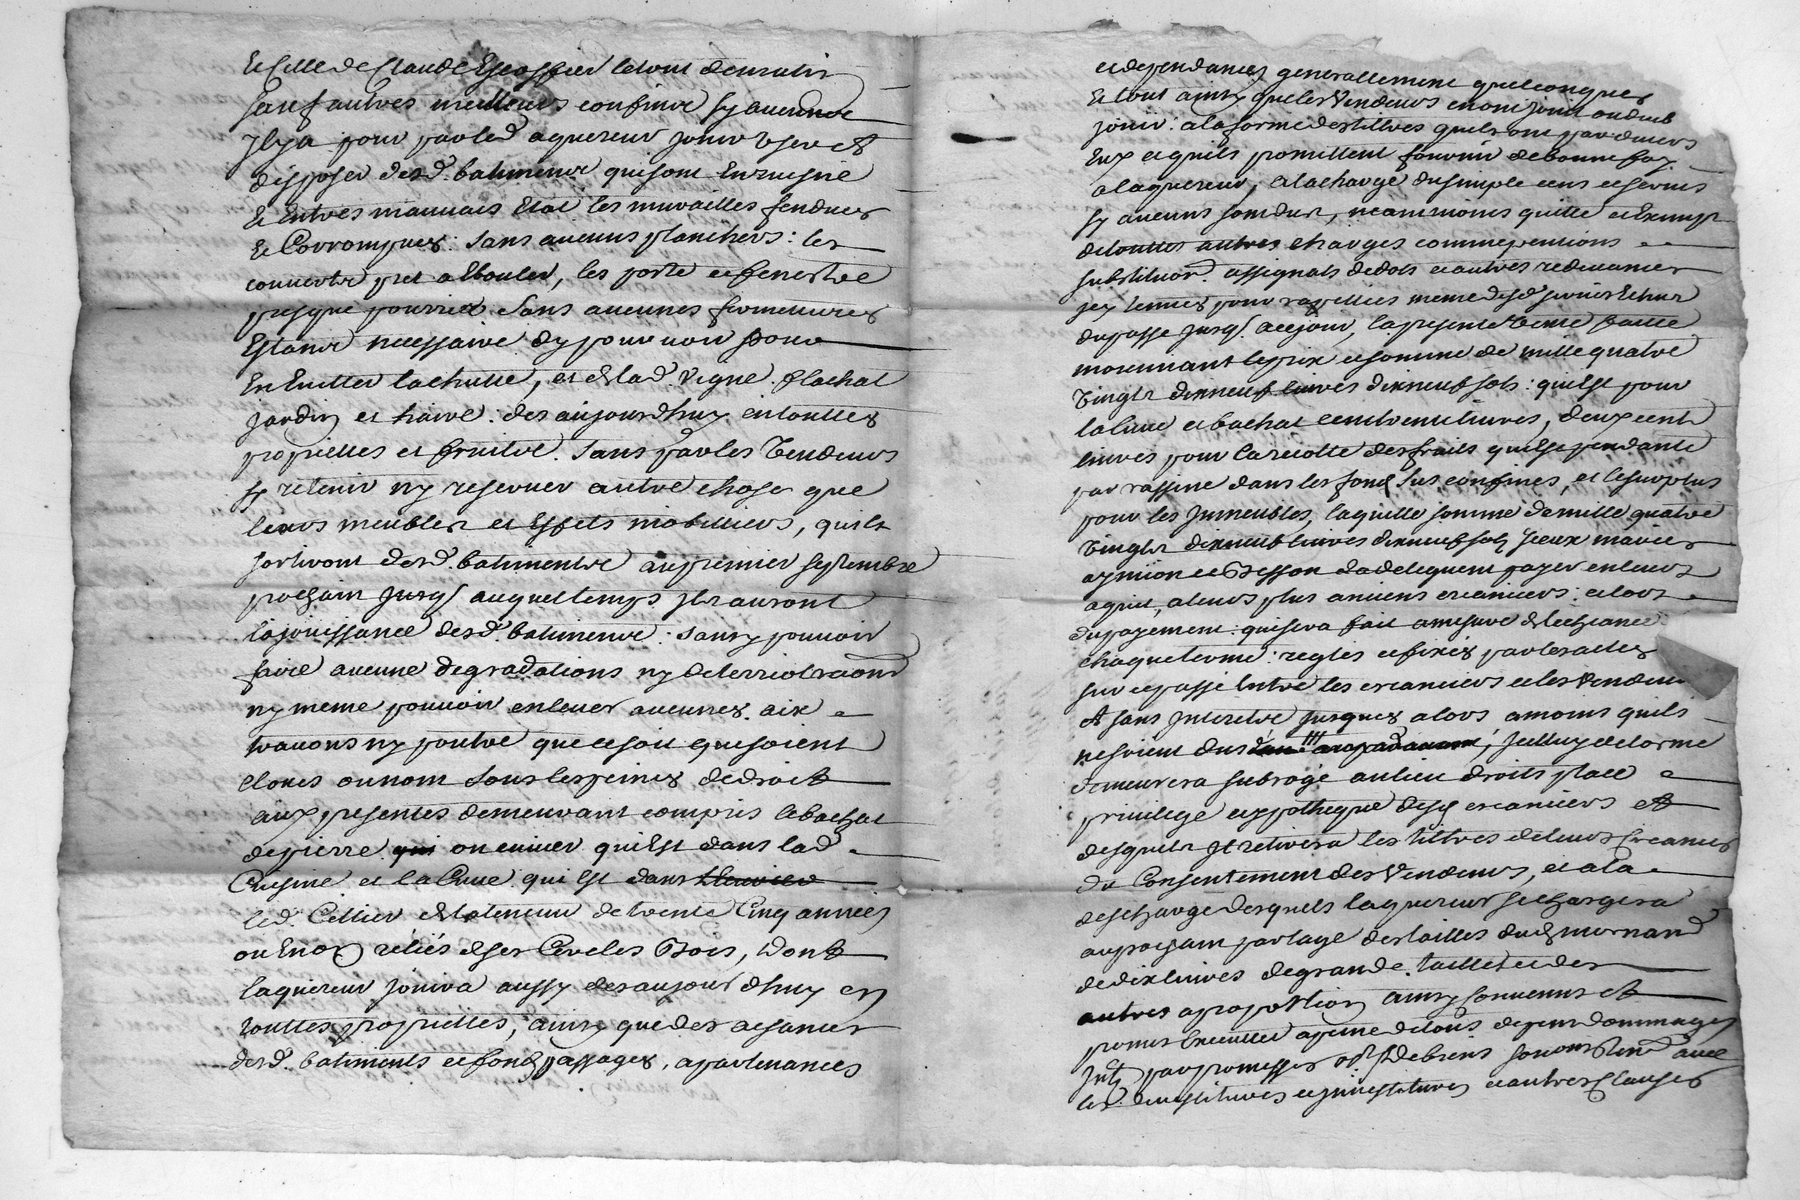 et celle de Claude Escoffier le tout de matin
sauf autres meilleurs confins sy aucuns
Il y a pour par led aquereur jouir user et
disposer desd. batiments qui sont en ruisne
et en tres mauvais etat les murailles fendues
et Corrompues: sans aucuns planchers: les
couverts pret a Ebouler, les porte et fenestre
presque pourries sans aucunes fermetures
Estant necessaire dy pourvoir pour
En Eviter la chutte, et de lad. vigne
jardin et haire: des aujourdhuy en touttes
proprietes et fruits. Sans par les vendeurs
sy retenir ny reserver autre chose que
leurs meubles et Effets mobilliers, quils
sortiront desd. batiments au premier septembre
prochain jusqs auquel temps ils auront
la jouissance desd. batiments: sans y pouvoir
faire aucune degradations ny deterriorations
ny meme pouvoir enlever aucunes aix
travons ny poutre que ce soit qui soient
cloues ou nom sous les peines de droit
aux presentes demeurant compris le bachat
de pierre on cuivier qui Est dans lad
Cuisine et la Cuve qui est dans
led. Cellier de la teneur de trente Cinq annees
ou Environ reliés de ses Cercles Bois, dont
laquereur jouira aussy des aujourdhuy en
touttes proprietes, ainsy que des aisances
desd. batiments et fonds passages, apartenances
et dependances generallement quelconques
Et tout ainsy que les Vendeurs en ont jouit ou deub
jouir: a la forme des tiltres quils ont par devers
Eux et quils promettent fournir de bonne foy
a laquereur, a la charge du simple cens et servis
sy aucuns sont dus, neammoins quitte et Exempt
de touttes autres charges comme pentions
substitution assignats de dots et autres redevances
du passe jusqs. a ce jour, la presente Vente faitte
moiennant le prix et somme de mille quatre
vingts dixneuf livres dixneuf sols: qui Est pour
la Cuve et bachat cent trente livres, deux cent
livres pour la recolte des fruits qui Est pendante
par rassine dans les fonds sus confines, et le surplus
pour les immeubles, laquelle somme de mille quatre
vingts dixneuf livres dixneuf sols
payer en leurs
aquit, a leurs plus anciens creanciers: et lors
du payement qui sera fait a mesure de l echeance
chaque terme: regles et fixes par les actes
sur ce passe Entre les creanciers et les Vendeurs
et sans Interetre jusques alors a moins quils
ne soient dus, Icelluy delorme
demeurera subroge au lieu droits place
privilege et ypotheque desd creanciers et
desquels Il retirera les tiltres de leurs Creances
du Consentement des Vendeurs, et a la
descharge desquels laquereur se chargera
au prochain partage des tailles dud mornand
de dix livres de grande taille et des
autres a proportion ainsy convenu et
promis Executer a peine de tous depens dommages
Ints par promesses
les Constitures et autres Clauses